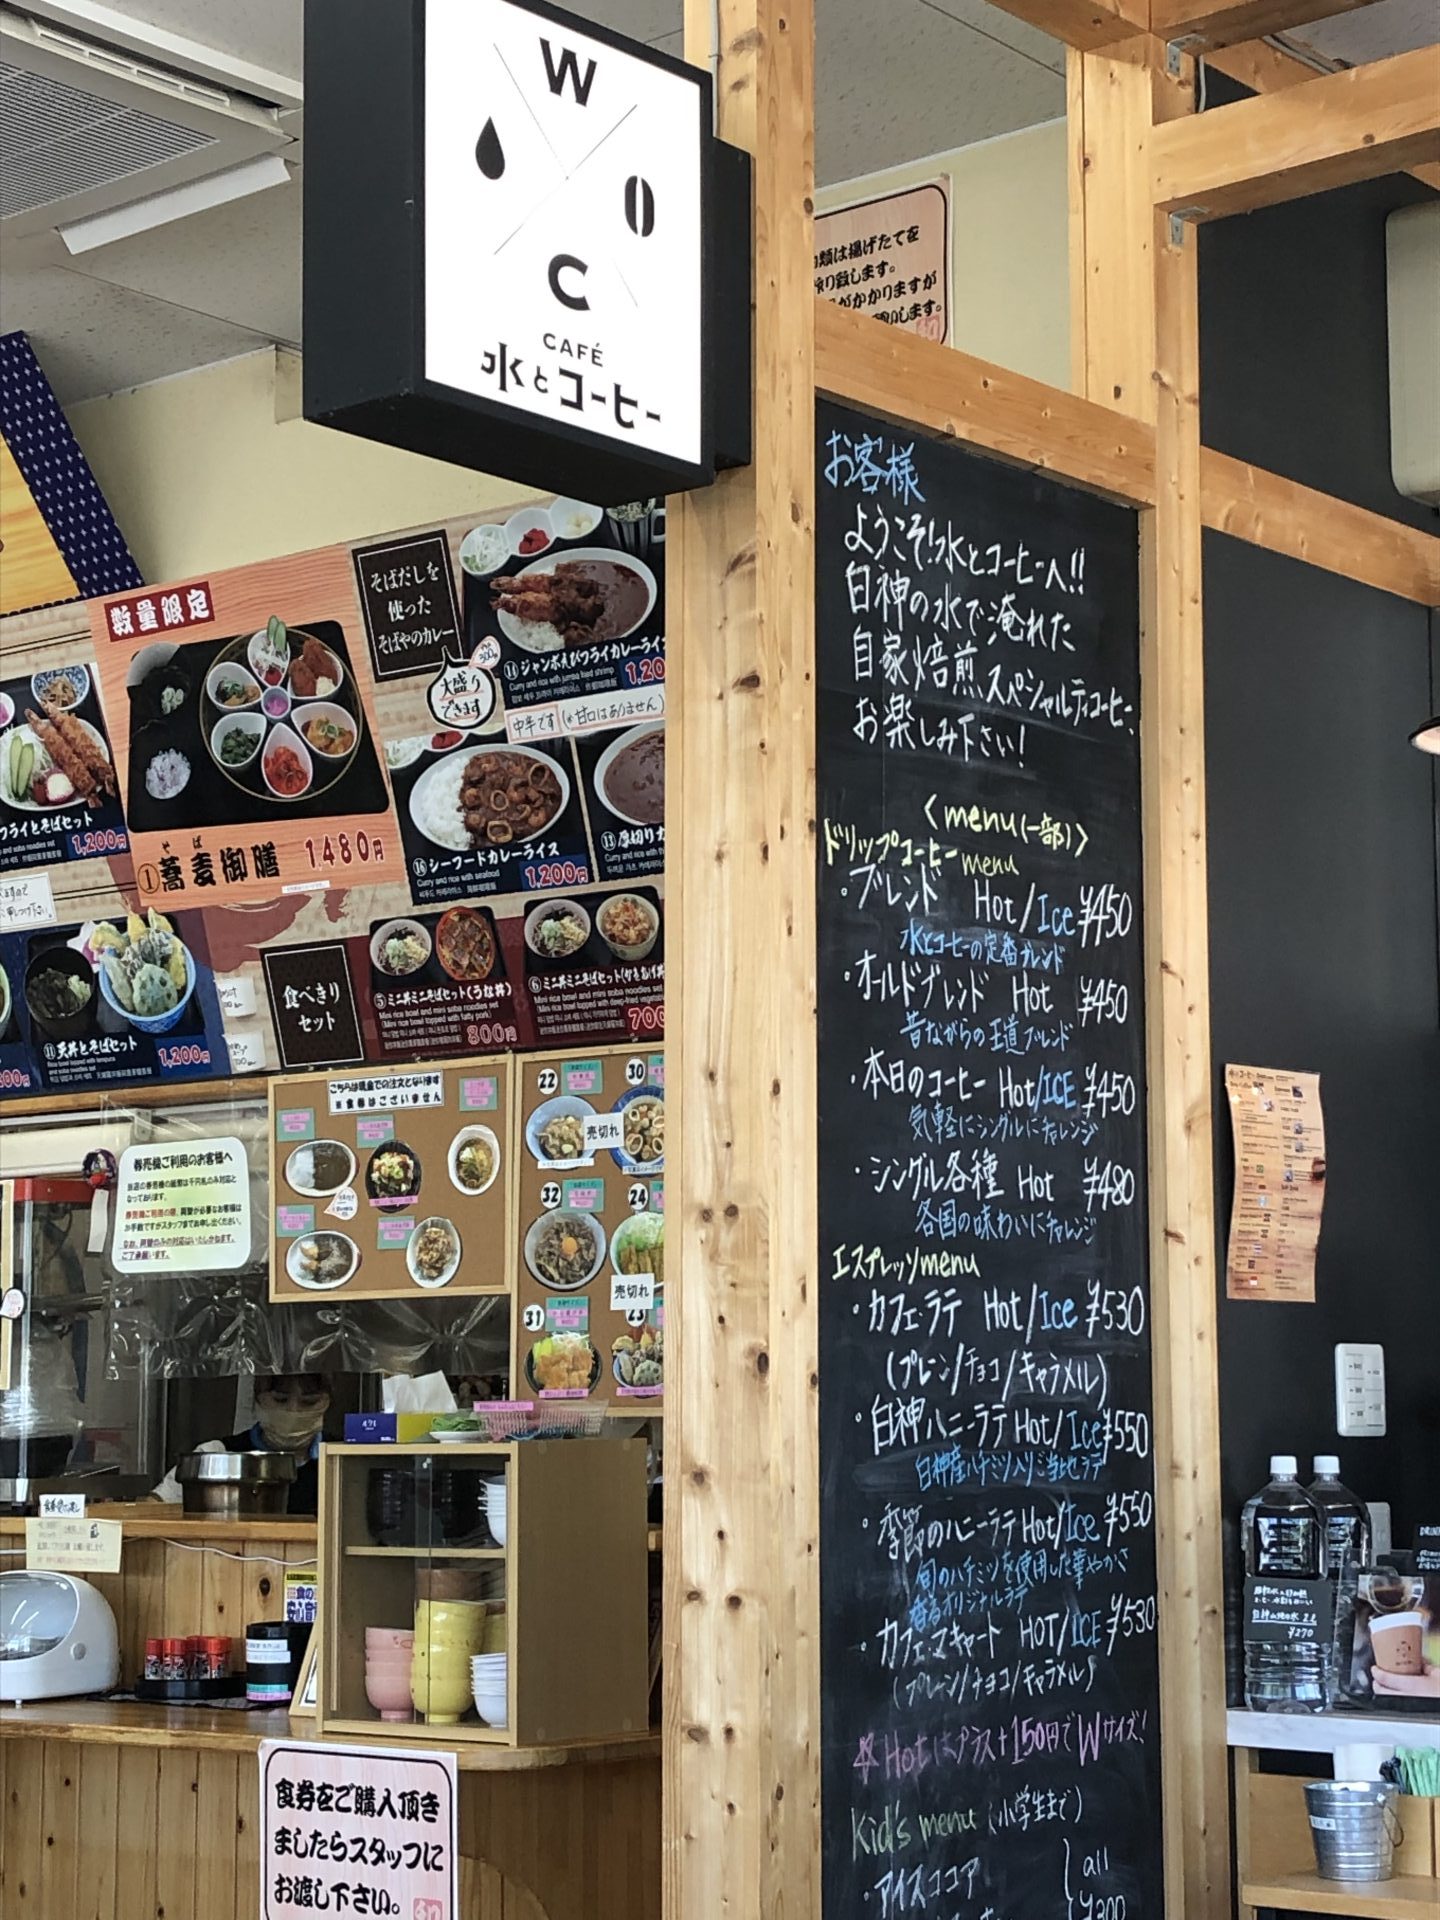 W
O
C
CAFÉ
水とコーヒー
類は揚げたてを
致します。
がかかりますが
します。
お客様
ようこそ!水とコーヒーへ!!
白神の水で淹れた
自家焙煎スペシャルティコーヒー、
お楽しみ下さい!
<menu(一部)>
ドリップコーヒーmenu
・ブレンド Hot/Ice ¥450
水とコーヒーの定番ブレンド
・オールドブレンド Hot ¥450
昔ながらの王道ブレンド
・本日のコーヒー Hot/ICE ¥450
気軽にシングルにチャレンジ
・シングル各種 Hot ¥480
各国の味わいにチャレンジ
エスプレッソmenu
・カフェ・ラテ Hot/Ice ¥530
(プレーン/チョコ/キャラメル)
・白神ハニーラテ Hot/Ice ¥550
白神産ハチミツ入りご当地ラテ
・季節のハニーラテ Hot/Ice ¥550
旬のハチミツを使用した華やかさ
香るオリジナルラテ
・カフェ・マキャート HOT/ICE ¥530
(プレーン/チョコ/キャラメル)
※Hotはプラス+150円でWサイズ!
Kid's menu (小学生まで)
・アイスココア
all
¥300
数量限定
①蕎麦御膳 1480円
そば
そばだしを
使った
そばやのカレー
大盛り
できます
⑭ジャンボえびフライカレーライス
Curry and rice with jumbo fried shrimp
1,20
中辛です (※甘口はありません)
⑯シーフードカレーライス
Curry and rice with seafood
1,200円
⑬厚切りカ
フライとそばセット
1,200円
⑪天丼とそばセット
1,200円
食べきり
セット
⑤ミニ丼ミニそばセット(うな丼)
Mini rice bowl and mini soba noodles set
800円
⑥ミニ丼ミニそばセット(かきあげ丼)
Mini rice bowl and mini soba noodles set
700
こちらは現金での注文となります
※食券はございません
22
30
売切れ
32
24
売切れ
31
23
券売機ご利用のお客様へ
当店の券売機の紙幣は千円札のみ対応と
なっております。
券売機ご利用の際、両替が必要なお客様は
お手数ですがスタッフまでお申し出ください。
なお、両替のみの対応はいたしかねます。
ご了承願います。
食券をご購入頂き
ましたらスタッフに
お渡し下さい。
白神山地の水 2ℓ
¥270